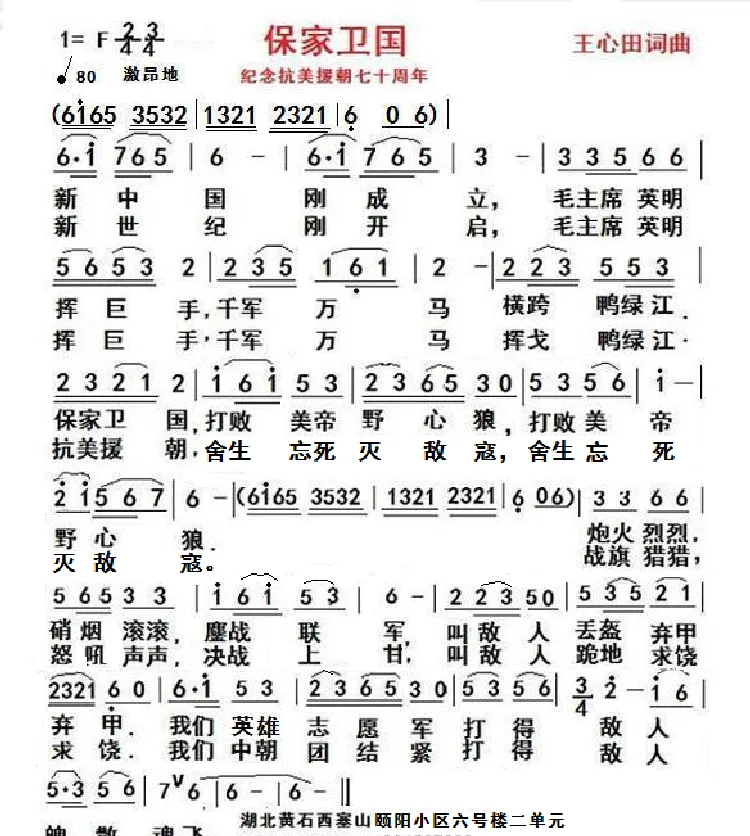 1= F 2/4 3/4 保家卫国 王心田词曲
80 激昂地 纪念抗美援朝七十周年
(6i65 3532 | 1321 2321 | 6 06)
6·i 765 | 6 - | 6·i 765 | 3 - | 33566
新中国刚成立,毛主席英明
新世纪刚开启,毛主席英明
5653 2 | 235 161 | 2 - | 223 553
挥巨手,千军万马横跨鸭绿江.
挥巨手·千军万马挥戈鸭绿江·
2321 2 | i6i 53 | 2365 30 | 53 56 | i -
保家卫国,打败美帝野心狼,打败美帝
抗美援朝.舍生忘死灭敌寇,舍生忘死
2i567 | 6 - | (6i65 3532 | 1321 2321 | 6 06) | 33 66
野心狼. 炮火烈烈,
灭敌寇。 战旗猎猎,
565 33 | i6i 53 | 6 - | 223 50 | 535 21
硝烟滚滚,鏖战联军,叫敌人丢盔弃甲
怒吼声声,决战上甘,叫敌人跪地求饶
2321 60 | 6·i 53 | 2365 30 | 53 56 | 3/4 2 - i6
弃甲.我们英雄志愿军打得敌人
求饶.我们中朝团结紧打得敌人
5·3 56 | 7 V 6 | 6 - | 6 - ‖
湖北黄石西塞山颐阳小区六号楼二单元
魂飞